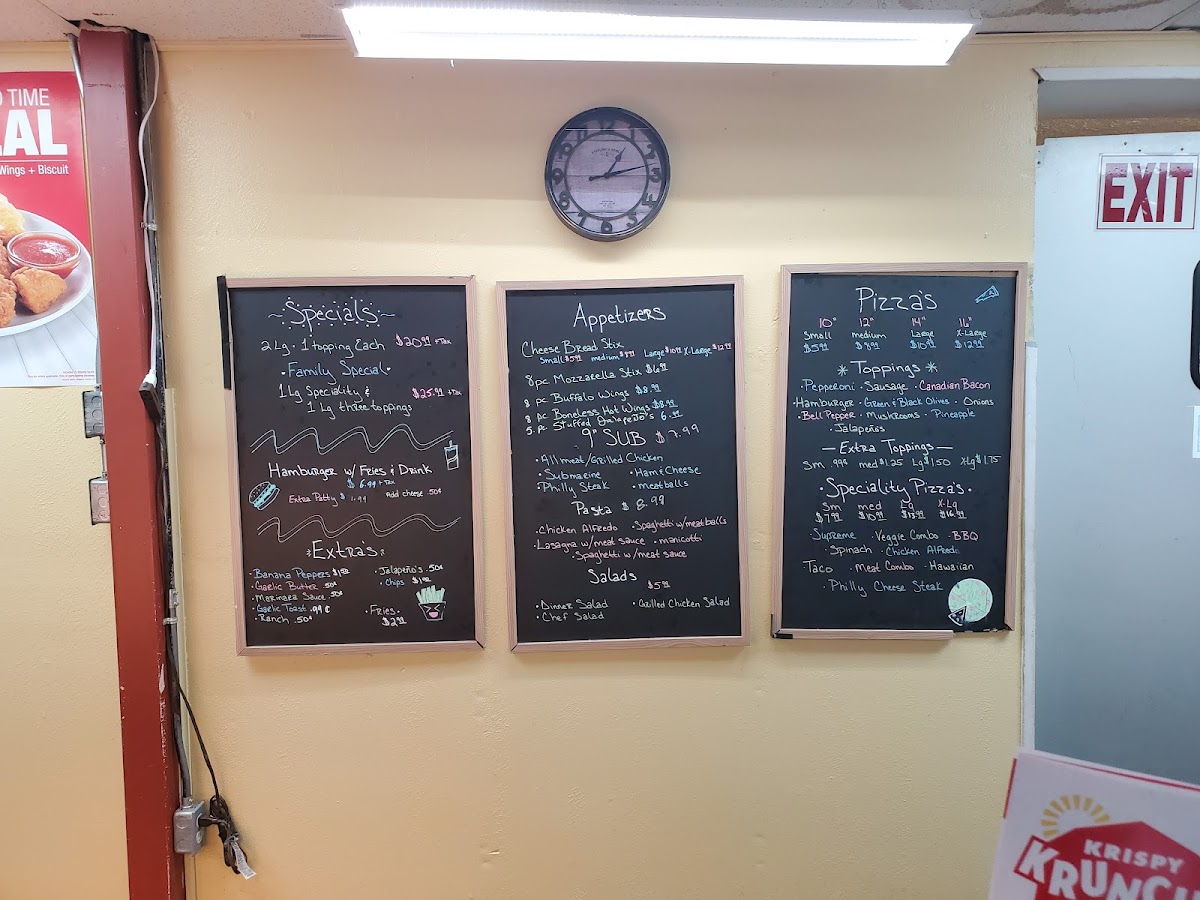 TIME
Wings + Biscuit
EXIT
~Specials~
2 Lg. 1 topping Each $20.99 +Tax
•Family Special•
1 Lg Speciality & $25.99 +Tax
1 Lg three toppings
Hamburger w/ Fries & Drink
$6.99 +Tax
Extra Patty $1.99 Add cheese .50¢
*Extra's*
•Banana Peppers $1.50
•Garlic Butter .50¢
•Marinara Sauce .50¢
•Garlic Toast .99¢
•Ranch .50¢
•Jalapeño's .50¢
•Chips $1.99
•Fries•
$2.99
Appetizers
Cheese Bread Stix
Small $5.99 medium $8.99 Large $10.99 X-Large $12.99
8pc Mozzarella Stix $6.99
8 pc Buffalo Wings $8.99
8 pc Boneless Hot Wings $8.99
5 pc Stuffed Jalapeño's 6.99
9" SUB $7.99
•All meat/Grilled Chicken
•Submarine •Ham & Cheese
•Philly Steak •meatballs
Pasta $8.99
•Chicken Alfredo •Spaghetti w/meatballs
•Lasagna w/meat sauce •manicotti
•Spaghetti w/meat sauce
Salads
$5.99
•Dinner Salad •Grilled Chicken Salad
•Chef Salad
Pizza's
10" 12" 14" 16"
Small medium Large X-Large
$5.99 $8.99 $10.99 $12.99
*Toppings*
•Pepperoni •Sausage •Canadian Bacon
•Hamburger •Green & Black Olives •Onions
•Bell Pepper •Mushrooms •Pineapple
•Jalapeños
—Extra Toppings—
Sm .99¢ med $1.25 Lg $1.50 X-Lg $1.75
•Speciality Pizza's•
Sm med Lg X-Lg
$7.99 $10.99 $13.99 $16.99
•Supreme •Veggie Combo •BBQ
•Spinach •Chicken Alfredo
Taco •Meat Combo •Hawaiian
•Philly Cheese Steak
KRISPY